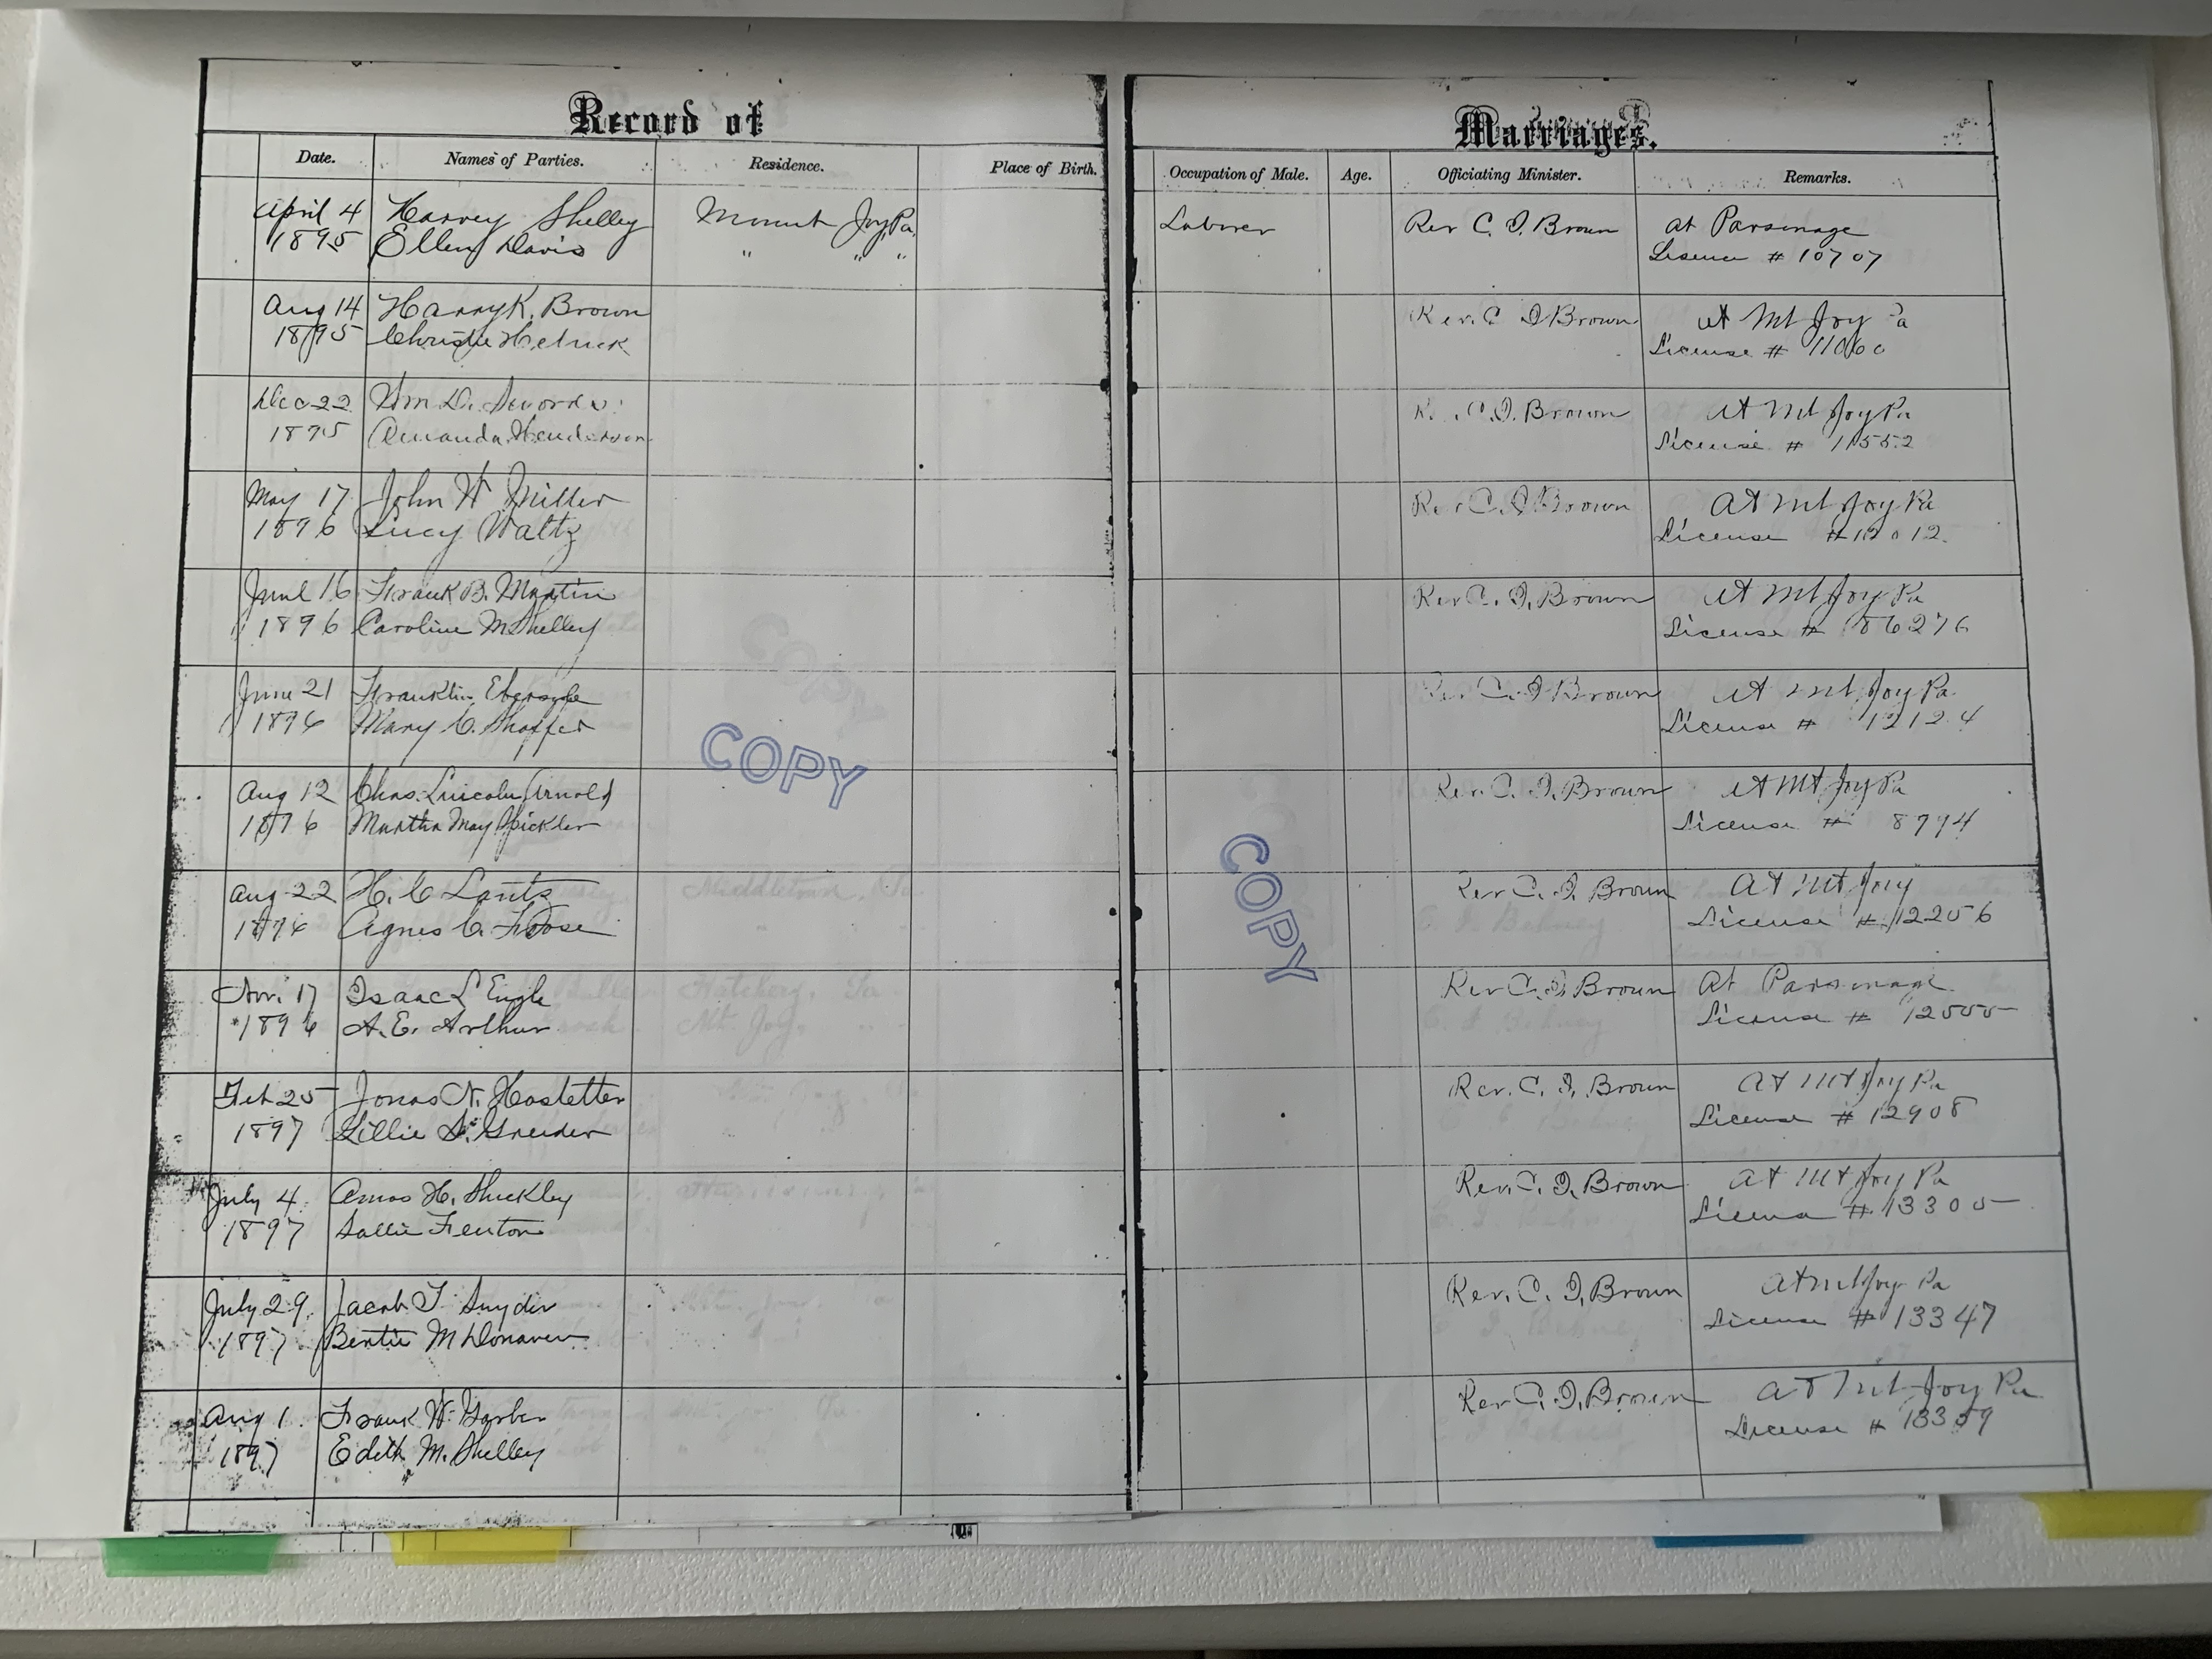 Record of
Marriages.
Date. Names of Parties. Residence. Place of Birth. Occupation of Male. Age. Officiating Minister. Remarks.
April 4 Harvey Shelley Mount Joy, Pa. Laborer Rev C. I. Brown at Parsonage
1895 Ellen Davis " " " # 10707
Aug 14 Harry K. Brown Rev. C I Brown. At Mt Joy Pa
1895 Christie License #
Dec 22 Wm D. C. I. Brown At Mt Joy Pa
1895 Amanda Henderson License # 11552
May 17 John H Miller Rev C. I Brown At Mt Joy Pa
1896 Lucy Waltz License # 12012.
June 16 Frank B. Martin Rev C. I. Brown At Mt Joy Pa
1896 Caroline M Shelley License #
June 21 Franklin Ebersole Rev C. I Brown At Mt Joy Pa
1896 Mary C. Shaffer License # 12124
Aug 12 Chas. Lincoln Arnold Rev. C. I. Brown At Mt Joy Pa
1896 Martha May Spickler License #
Aug 22 H. C Lantz Rev C. I. Brown At Mt Joy
1896 Agnes C. License # 12256
Nov. 17 Isaac L Engle Rev C. I. Brown At Parsonage
1896 A. E. Arthur License #
Feb 25 Jonas N. Hostetter Rev. C. I, Brown At Mt Joy Pa
1897 Lillie S. Greider License # 12908
July 4 Amos H. Shickley Rev. C. I. Brown At Mt Joy Pa
1897 Sallie Fenton # 13305
July 29. Jacob T Snyder Rev. C. I, Brown At Mt Joy Pa
1897 Bertie M Donaven License # 13347
Aug 1 Frank W. Garber Rev C. I, Brown At Mt Joy Pa
1897 Edith M. Shelley License # 13359
COPY
COPY